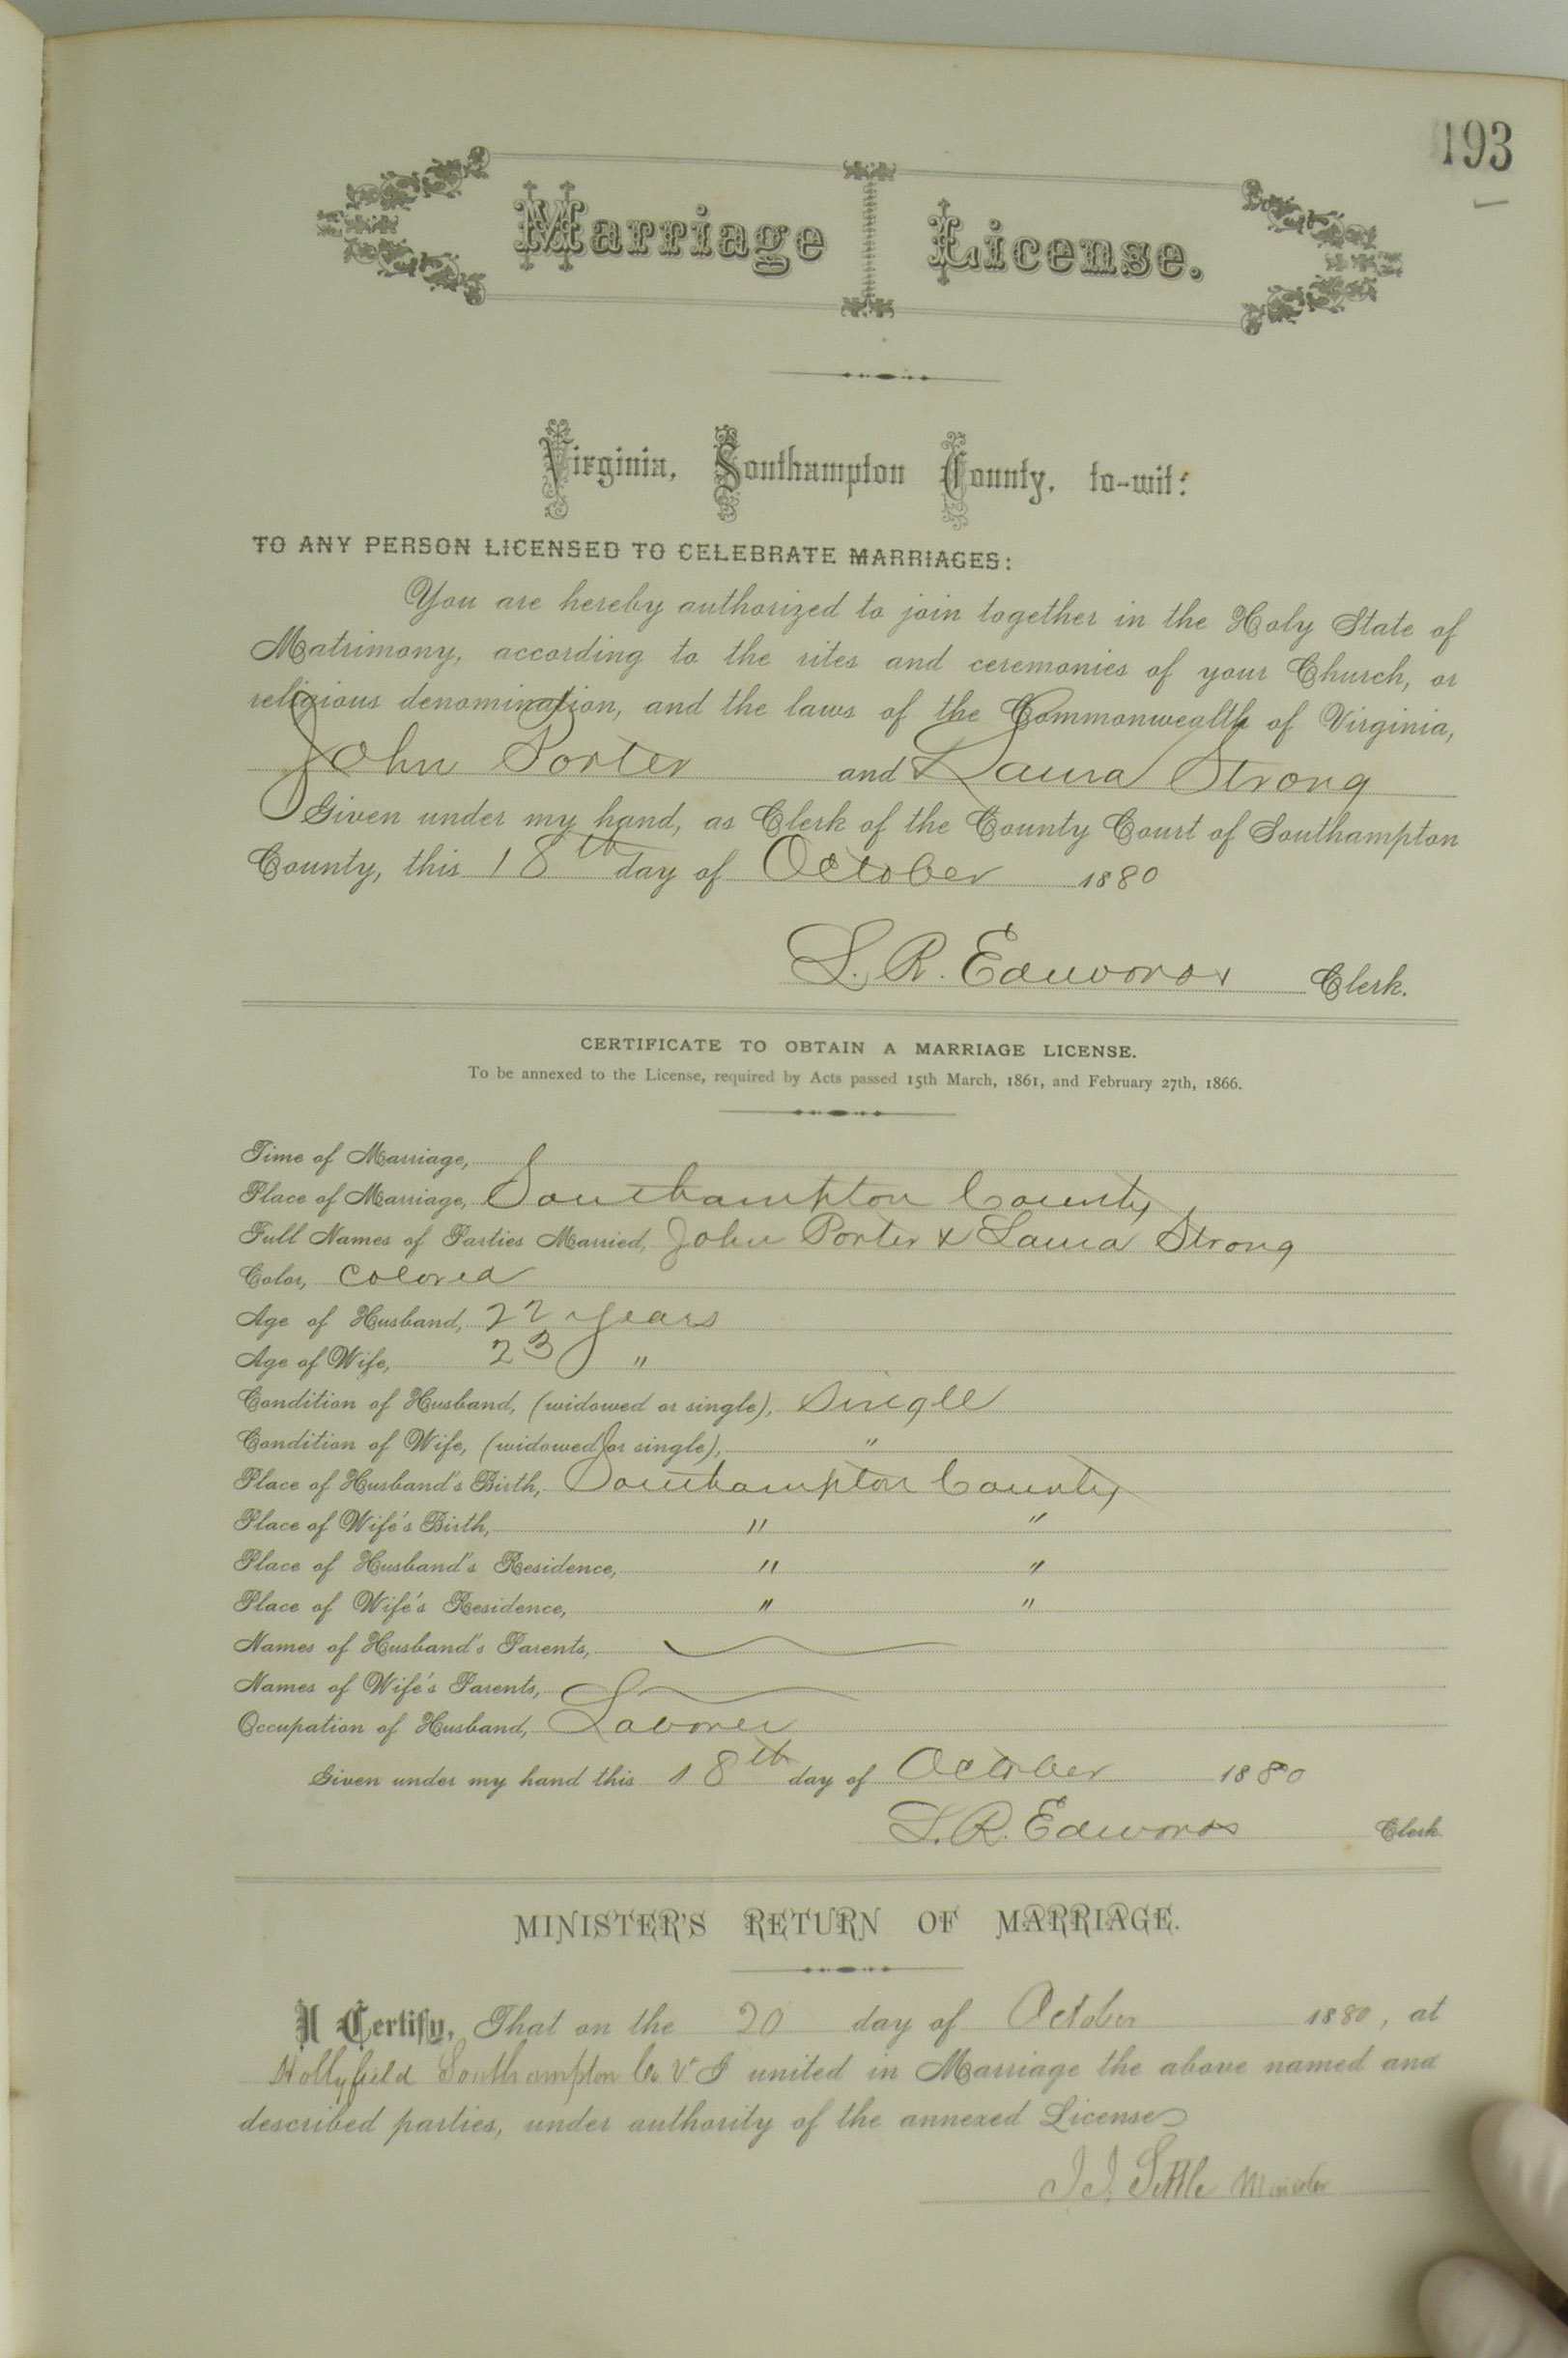 193
Marriage License.
Virginia, Southampton County, to-wit:
TO ANY PERSON LICENSED TO CELEBRATE MARRIAGES:
You are hereby authorized to join together in the Holy State of
Matrimony, according to the rites and ceremonies of your Church, or
religious denomination, and the laws of the Commonwealth of Virginia,
John Porter and Laura Strong
Given under my hand, as Clerk of the County Court of Southampton
County, this 18th day of October 1880
L. R. Edwards Clerk.
CERTIFICATE TO OBTAIN A MARRIAGE LICENSE.
To be annexed to the License, required by Acts passed 15th March, 1861, and February 27th, 1866.
Time of Marriage,
Place of Marriage, Southampton County
Full Names of Parties Married, John Porter & Laura Strong
Color, Colored
Age of Husband, 22 years
Age of Wife, 23 "
Condition of Husband, (widowed or single), Single
Condition of Wife, (widowed or single), "
Place of Husband's Birth, Southampton County
Place of Wife's Birth, " "
Place of Husband's Residence, " "
Place of Wife's Residence, " "
Names of Husband's Parents,
Names of Wife's Parents,
Occupation of Husband, Laborer
Given under my hand this 18th day of October 1880
L. R. Edwards Clerk.
MINISTER'S RETURN OF MARRIAGE.
I Certify, That on the 20 day of October 1880, at
Hollyfield Southampton Co. V I united in Marriage the above named and
described parties, under authority of the annexed License
J. J. Settle Minister